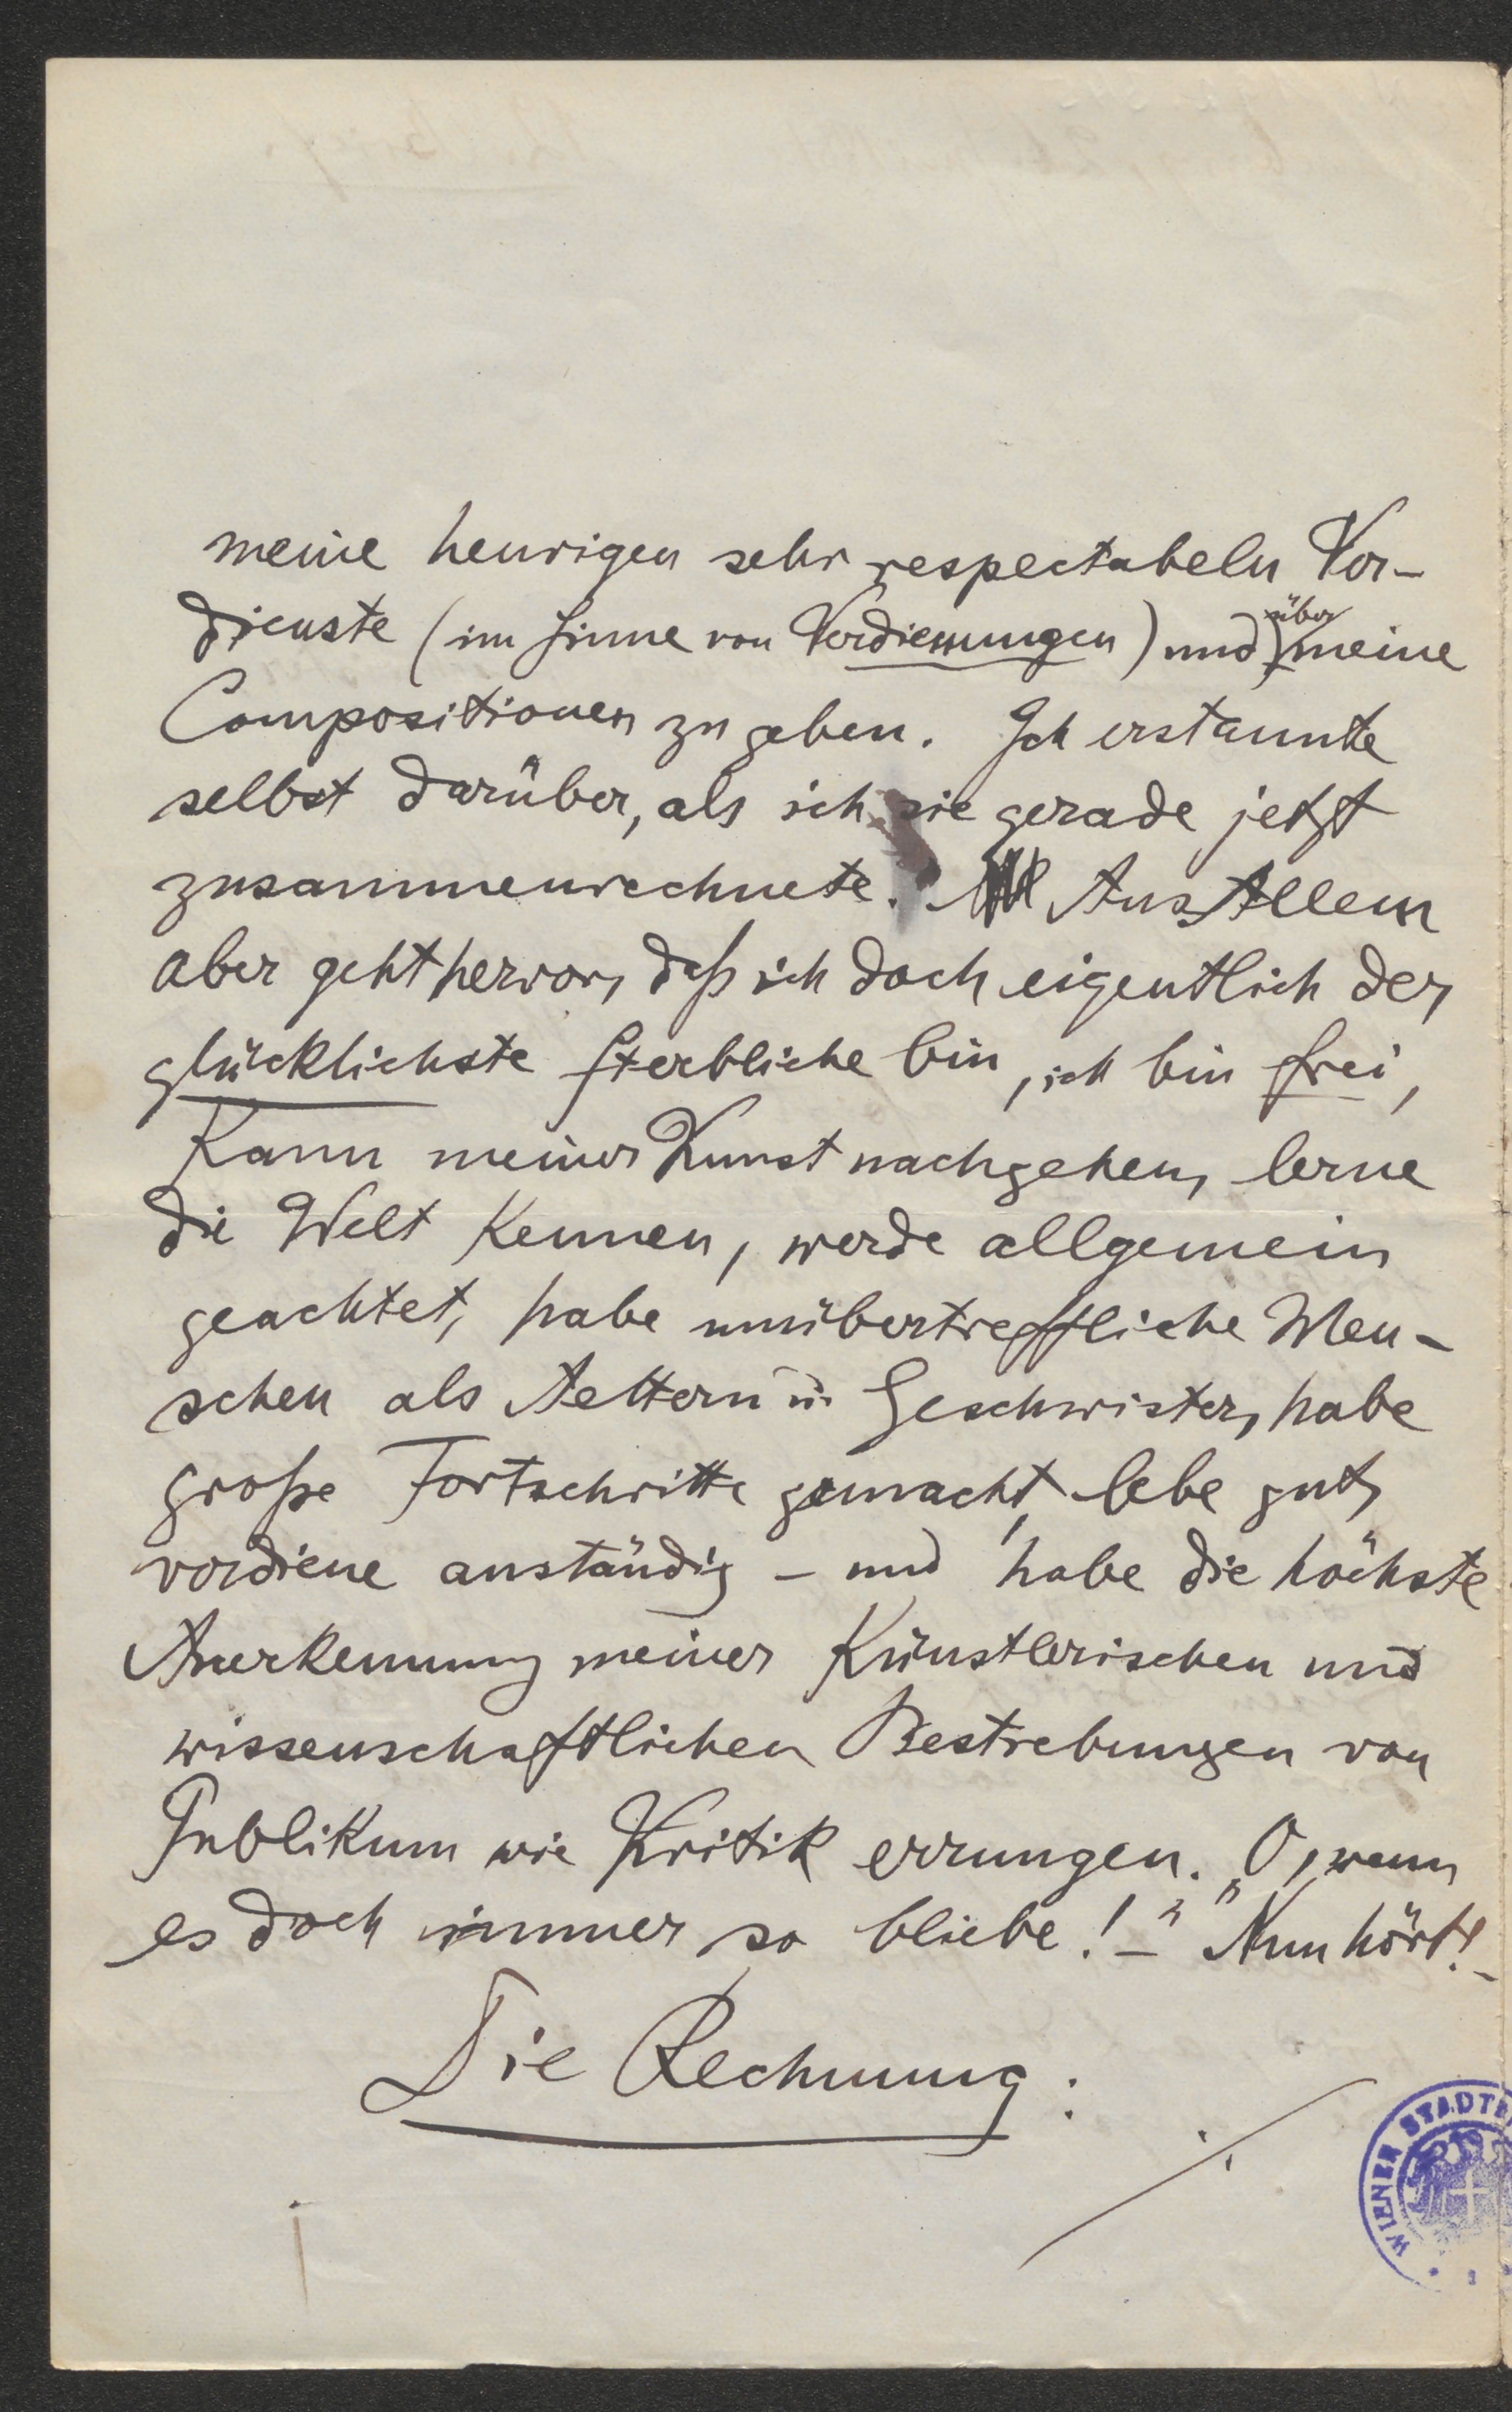 meine heurigen sehr respectabeln Ver-
dienste (im Sinne von Verdienungen) und über meine
Compositionen zu geben. Ich erstaunte
selbst darüber, als ich sie gerade jetzt
zusammenrechnete. Aus Allem
aber geht hervor, daß ich doch eigentlich der
glücklichste Sterbliche bin, ich bin frei,
kann meiner Kunst nachgehen, lerne
die Welt kennen, werde allgemein
geachtet, habe unübertreffliche Men-
schen als Aeltern u. Geschwister, habe
große Fortschritte gemacht, lebe gut,
verdiene anständig – und habe die höchste
Anerkennung meiner künstlerischen und
wissenschaftlichen Bestrebungen von
Publikum wie Kritik errungen. „O, wenn
es doch immer so bliebe! –" Nun hört! –
Die Rechnung:
./.
WIENER STADTB